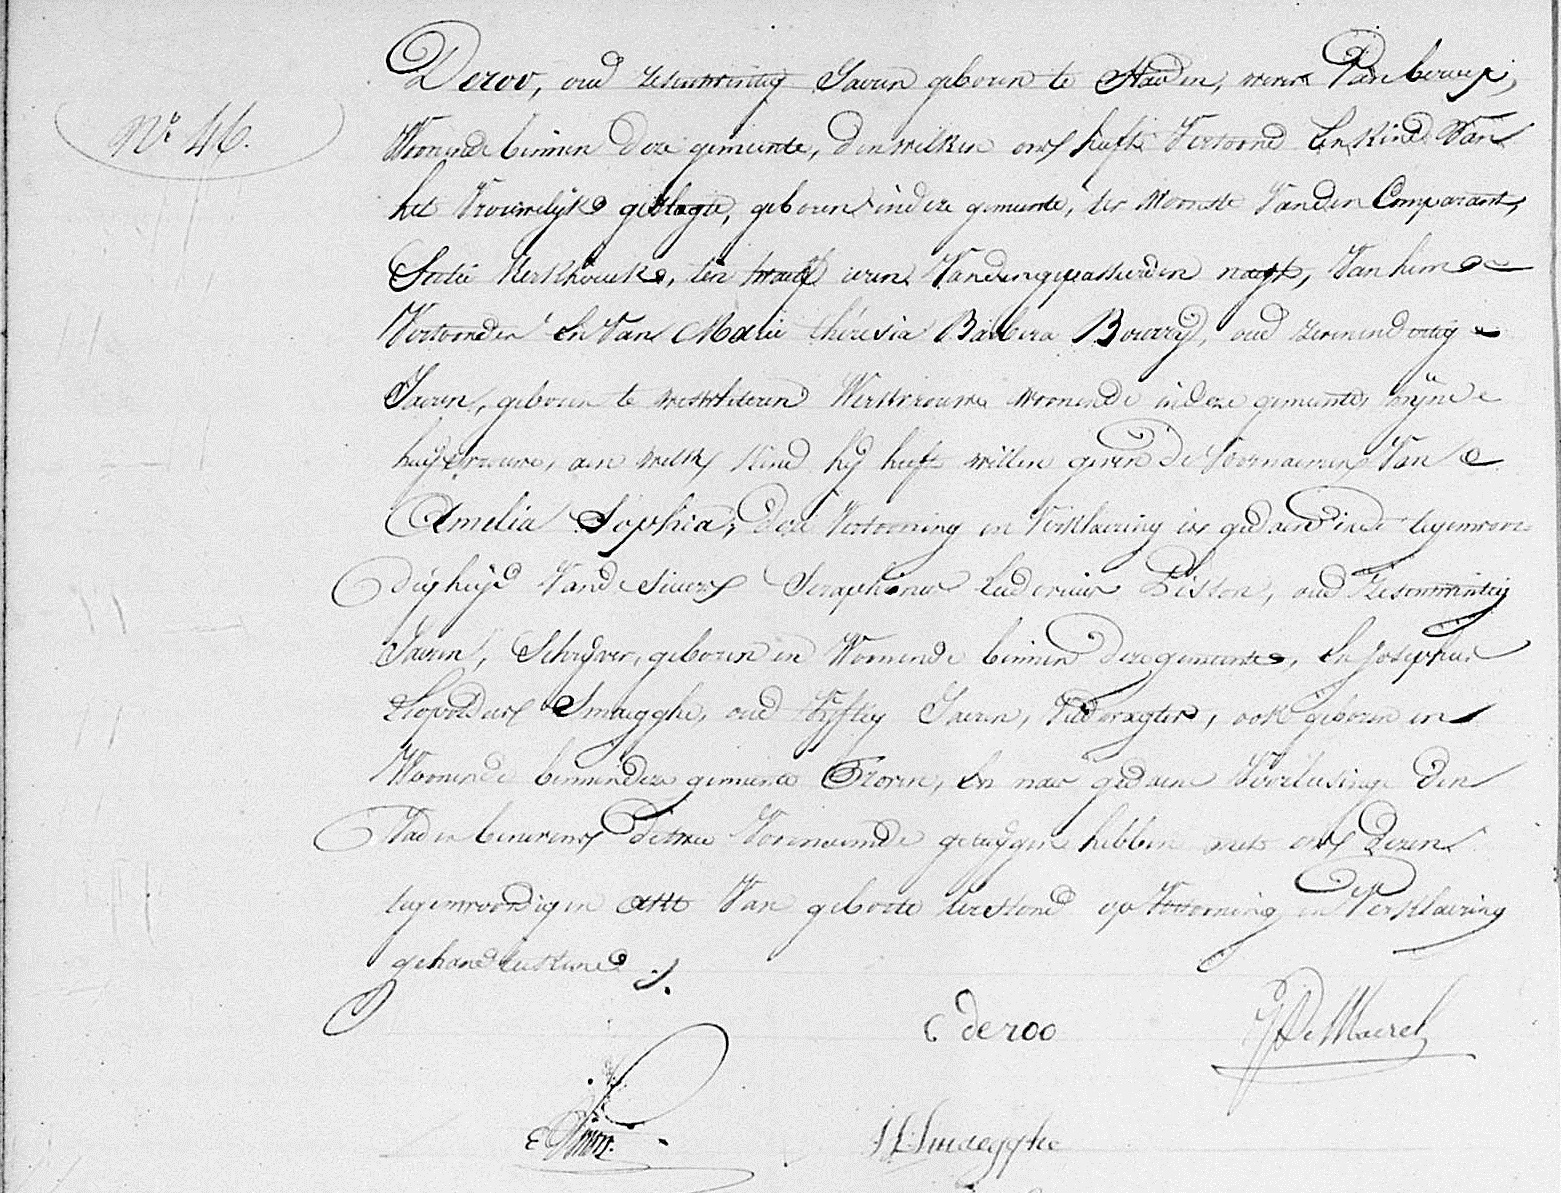 Deroo, oud zesentwintig Jaeren geboren te Staden, werkm van beroep,
N° 46.
Woonende binnen deze gemeente, denwelken ons heeft Vertoond Een Kind Van
het Vrouwelijk geslagte, geboren in deze gemeente, ter Woonste Vanden Comparant,
Sectie Kerkhoek, ten twaelf uren Vandengepasseerden nagt, Van hem
Vertoonder En Van Marie thérésia Barbera Bouvry, oud zevenendertig
Jaeren, geboren te Westvleteren Werkvrouwe woonende indeze gemeente, zijne
huijsvrouwe, aen welk Kind hij heeft willen geven de Voornaemen Van
Amelia Sophia, deze Vertooning en Verklaering is gedaen in de tegenwoor-
digheijd Vande Sieurs Seraphinus Ludovicus Disson, oud Zesentwintig
Jaeren, Schrijver, geboren en Woonende binnen deze gemeente, En Josephus
Leopoldus Smaegghe, oud Vyftig Jaeren, Veldwagter, ook geboren en
Woonende binnendeze gemeente Proven, En naer gedaene Voorlesinge den
Vader benevens de twee Voornoemde getuijgen hebben met ons dezen
tegenwoordigen akt Van geboorte terstond op Vertooning en Verklaering
gehandteekend ./.
C deroo
De Maerel
J L Smaegghe